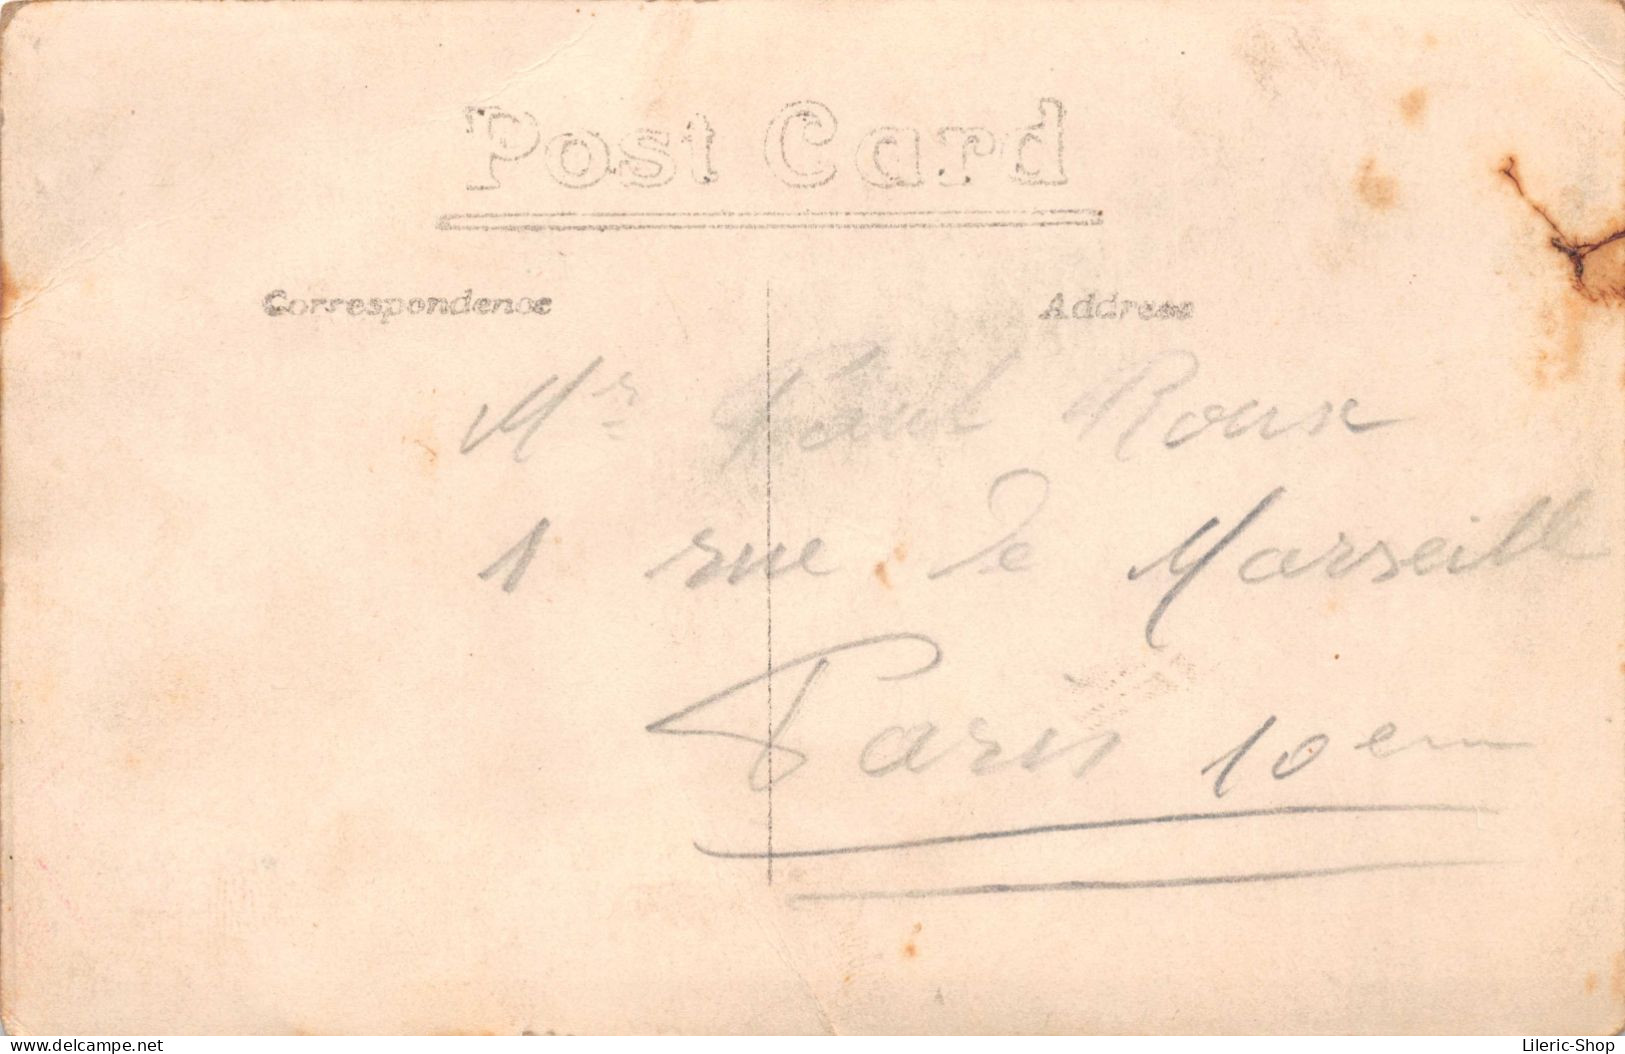 Post Card
Correspondence
Address
Mr Paul Roux
1 rue de Marseille
Paris 10em
Lileric-Shop
delcampe.net